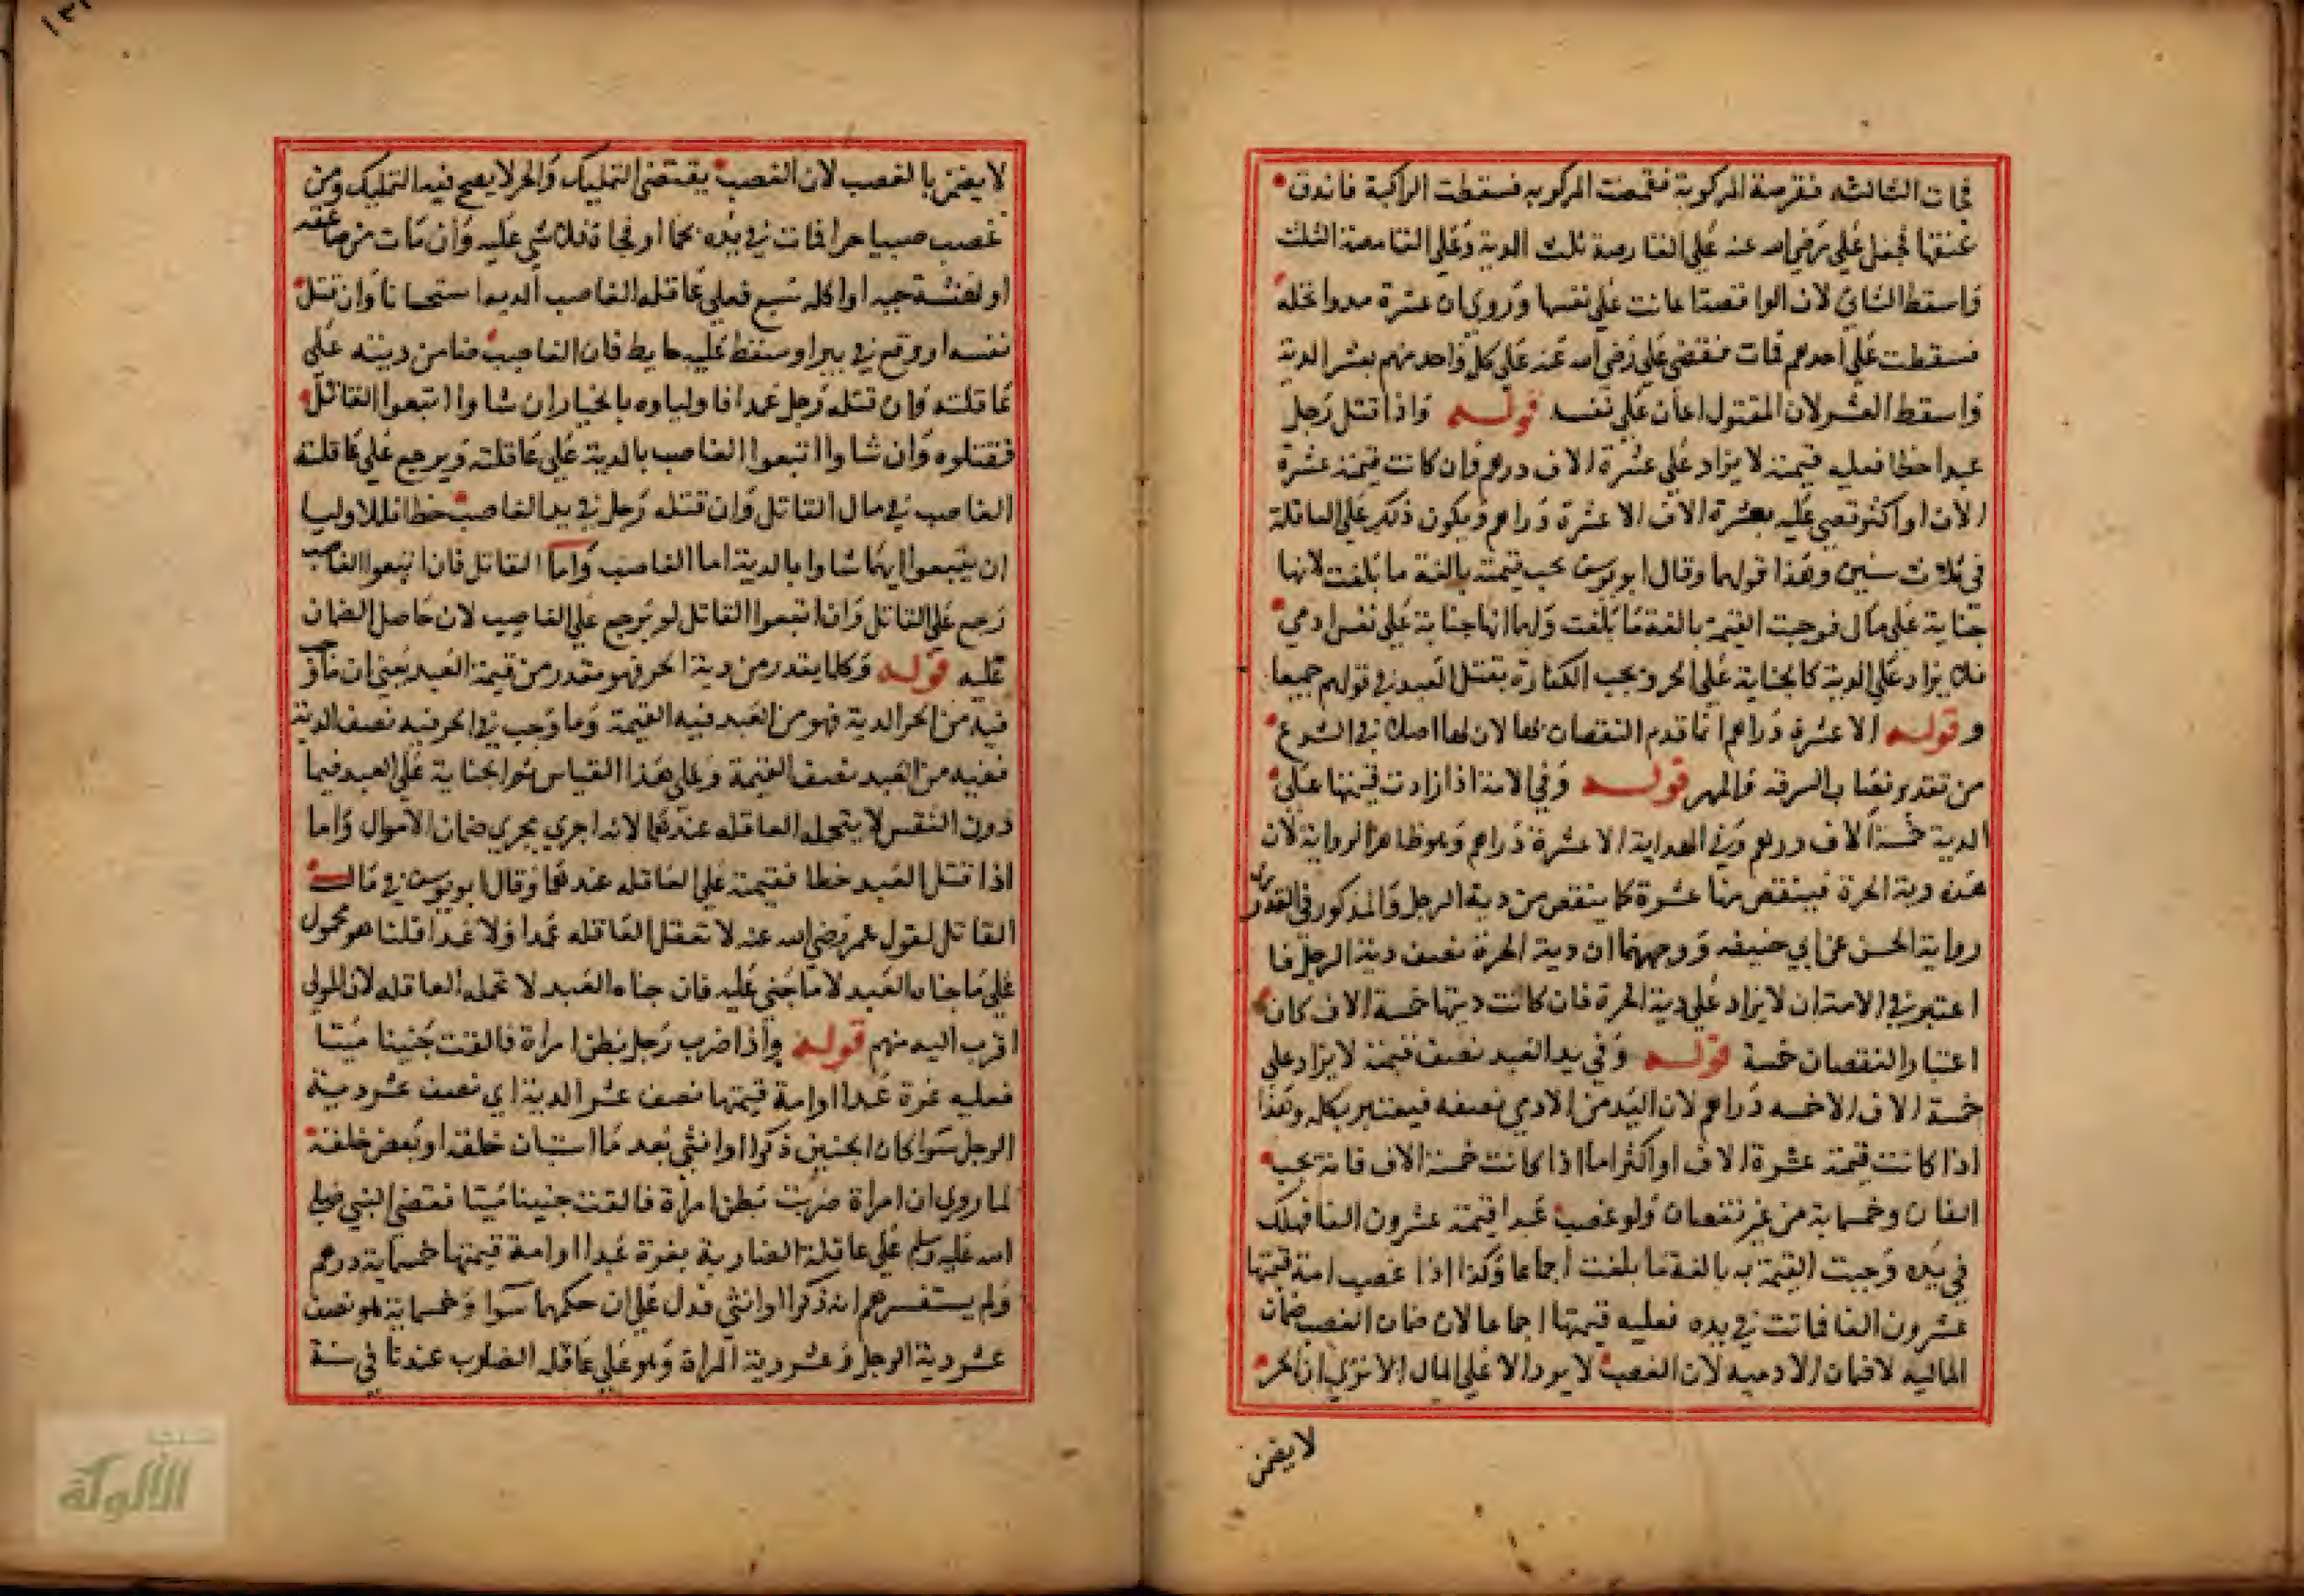 فجات الثالثه فقرصة المركوبة فقمصت المركوبه فسقطت الراكبة فاندق
عنقها فجعل علي رضي الله عنه علي القارصة ثلث الدية وعلي القامصة الثلث
واسقط الثلث لان الواقصة اعانت علي نفسها وروي ان عشرة مدوا نخله
فسقطت علي احدهم فمات فقضي علي رضي الله عنه علي كل واحد منهم بعشر الدية
واسقط العشر لان المقتول اعان علي نفسه قوله واذا قتل رجل
عبدا خطا فعليه قيمته لا يزاد علي عشرة الاف درهم فان كانت قيمته عشرة
الاف او اكثر قضي عليه بعشرة الاف الا عشرة دراهم ويكون ذلك علي العاقلة
في ثلاث سنين وهذا قولهما وقال ابو يوسف تجب قيمته بالغة ما بلغت لانها
جناية علي مال فوجبت القيمة بالغة ما بلغت ولهما انها جناية علي نفس ادمي
فلا يزاد علي الدية كالجناية علي الحر وتجب الكفارة بقتل العبد في قولهم جميعا
وقوله الا عشرة دراهم انما قدم النقصان بها لان لها اصلا في الشرع
من تقدير نصابالسرقه والمهر قوله وفي الامة اذا زادت قيمتها علي
الدية خمسة الاف درهم وفي الهداية الا عشرة دراهم وهو ظاهر الرواية لان
هذه دية الحرة فينقص منها عشرة كما ينقص من دية الرجل والمذكور في القدوري
رواية الحسن عن ابي حنيفه ووجهها ان دية الحرة نصف دية الرجل فما
اعتبر في الامة ان لا يزاد علي دية الحرة فان كانت ديتها خمسة الاف كان
اعتبار النقصان خمسة قوله وفي يد العبد نصف قيمته لا يزاد علي
خمسة الاف الا خمسه دراهم لان اليد من الادمي نصفه فيعتبر بكله وهذا
اذا كانت قيمته عشرة الاف او اكثر اما اذا كانت خمسة الاف فانه يجب
الفان وخمسماية من غير نقصان ولو غصب عبدا قيمته عشرون الفا فهلك
في يده وجبت القيمة به بالغة ما بلغت اجماعا وكذا اذا غصب امة قيمتها
عشرون الفا فماتت في يده فعليه قيمتها اجماعا لان ضمان الغصب ضمان
الماليه لا ضمان الادميه لان الغصب لا يرد الا علي المال الا تري ان الحر
لا يضمن
لا يضمن بالغصب لان الغصب يقتضي التمليك والحر لا يصح فيه التمليك ومن
غصب صبيا حرا فمات في يده بحما او فجاة فلا شي عليه وان مات من صاعقه
او نهشة حيه او اكله سبع فعلي عاقله الغاصب الديه استحسانا وان قتل
نفسه او وقع في بير او سقط عليه حايط فان الغاصب ضامن ديته علي
عاقلته وان قتله رجل عمدا فاولياوه بالخيار ان شاوا اتبعوا القاتل
فقتلوه وان شاوا اتبعوا الغاصب بالدية علي عاقلته ويرجع علي عاقلته
الغاصب في مال القاتل وان قتله رجل في يد الغاصب خطا فللاوليا
ان يتبعوا ايهما شاوا بالدية اما الغاصب واما القاتل فان اتبعوا الغاصب
رجع علي القاتل وان اتبعوا القاتل لم يرجع علي الغاصب لان حاصل الضمان
عليه قوله وكلما يقدر من دية الحر فهو مقدر من قيمة العبد يعني ان ما وجب
فيه من الحر الدية فهو من العبد فيه القيمة وما وجب في الحر فيه نصف الدية
ففيه من العبد نصف القيمة وعلي هذا القياس ثم الجناية علي العبد فيما
دون النفس لا يتحمله العاقله عندهما لانه اجري مجري ضمان الاموال واما
اذا قتل العبد خطا فقيمته علي العاقله عندهما وقال ابو يوسف في مال
القاتل لقول عمر رضي الله عنه لا تعقل العاقله عمدا ولا عبدا قلنا هو محمول
علي ما جناه العبد لا ما جني عليه فان جناه العبد لا تحمله العاقله لان المولي
اقرب اليه منهم قوله واذا ضرب رجل بطن امراة فالقت جنينا ميتا
فعليه غرة عبدا او امة قيمتها نصف عشر الدية اي نصف عشر دية
الرجل سوا كان الجنين ذكرا او انثي بعد ما استبان خلقه او بعض خلقه
لما روي ان امراة ضربت بطن امراة فالقت جنينا ميتا فقضي النبي صلي
الله عليه وسلم علي عاقلة الضاربة بغرة عبدا او امة قيمتها خمسماية درهم
ولم يستفسرهم انه ذكرا او انثي فدل علي ان حكمهما سوا وخمسماية هو نصف
عشر دية الرجل وعشر دية المراة وهو علي عاقله الضارب عندنا في سنة
الألوكة